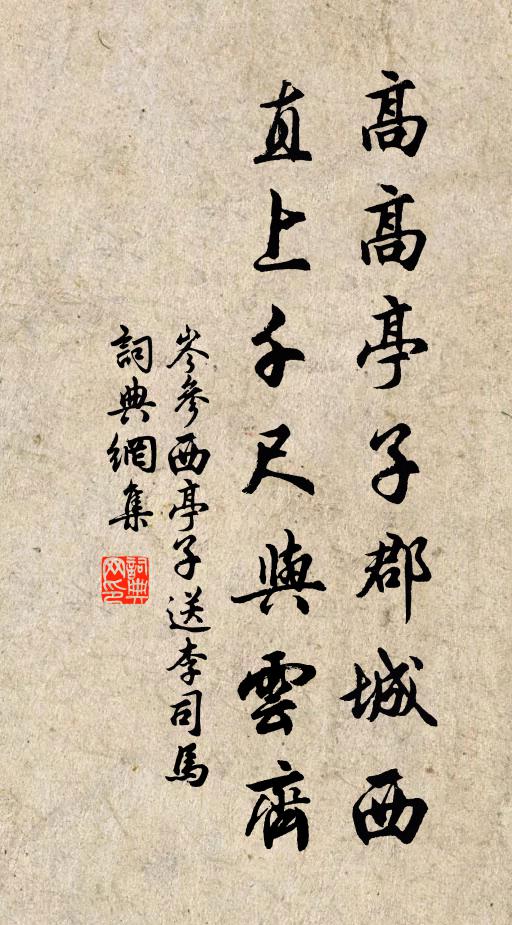 高高亭子郡城西
直上千尺與雲齊
岑參西亭子送李司馬
詞典網集
詞典
网印